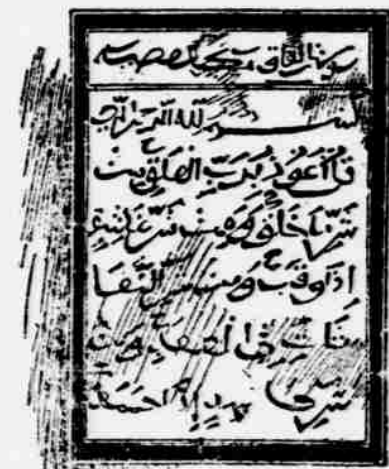 سورة الفلق
بسم الله الر
قُلْ أَعُوذُ بِرَبِّ الْفَلَقِ مِنْ
شَرِّ مَا خَلَقَ وَمِنْ شَرِّ غَاسِقٍ
اذَا وَقَبَ وَمِنْ شَرِّ النَّفَا
ثَاتِ فِي الْعُقَدِ وَمِنْ
شَرِّ حَا سِدٍ اذَا حَسَدَ